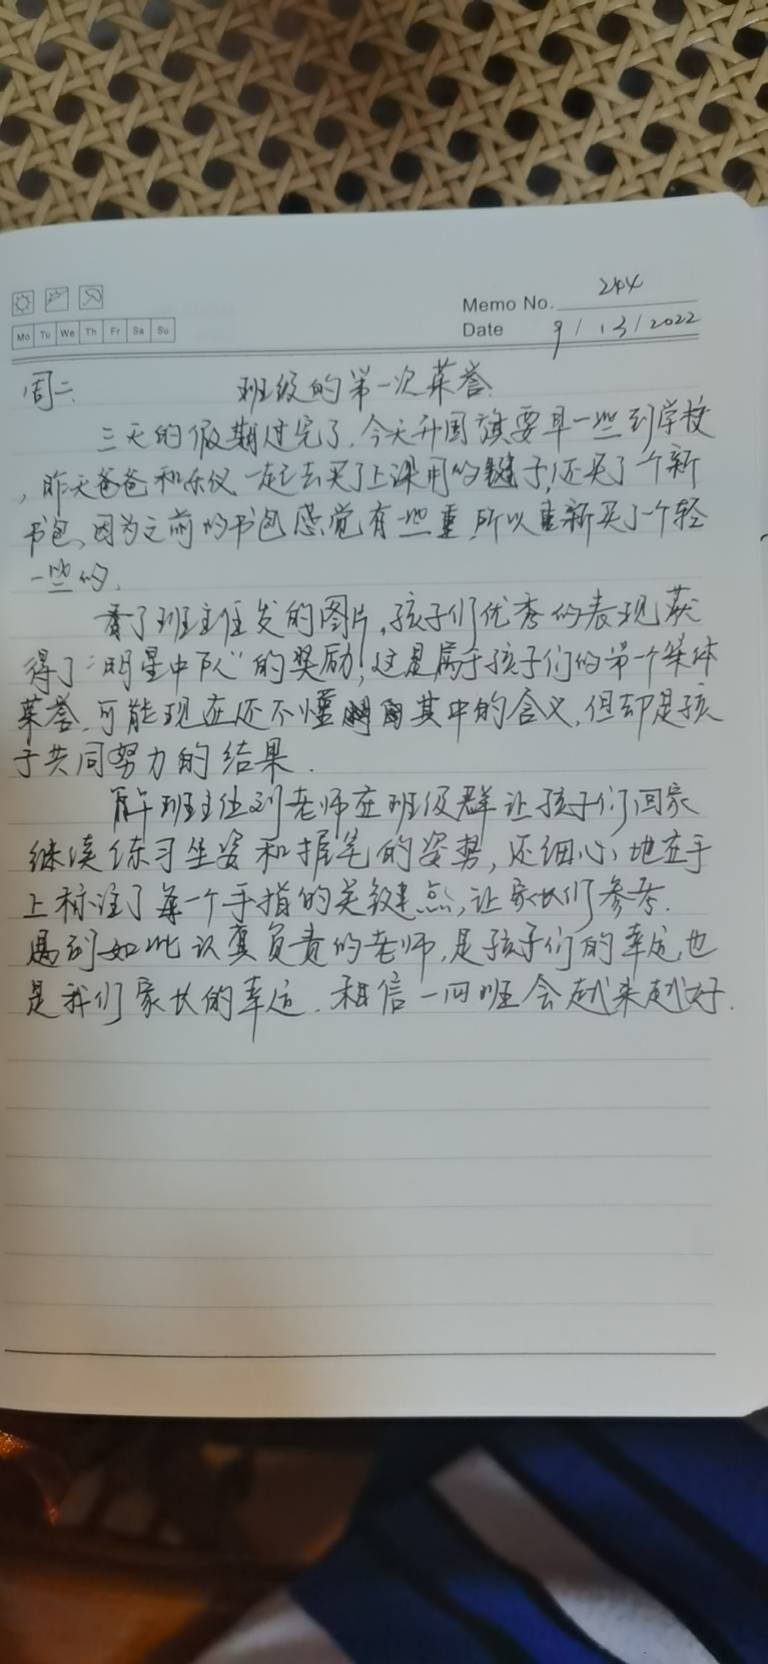 Memo No. 244
Mo Tu We Th Fr Sa Su
Date 9/13/2022
周二 班级的第一次荣誉
三天的假期过完了,今天升国旗要早一些到学校
,昨天爸爸和乐仪一起去买了上课用的毽子,还买了个新
书包,因为之前的书包感觉有一些重,所以重新买了一个轻
一些的.
看了班主任发的图片,孩子们优秀的表现获
得了“明星中队”的奖励,这是属于孩子们的第一个集体
荣誉,可能现在还不懂其中的含义,但却是孩
子共同努力的结果.
班主任刘老师在班级群让孩子们回家
继续练习坐姿和握笔的姿势,还细心地在手
上标注了每一个手指的关键点,让家长们参考.
遇到如此认真负责的老师,是孩子们的幸运,也
是我们家长的幸运.相信一四班会越来越好.